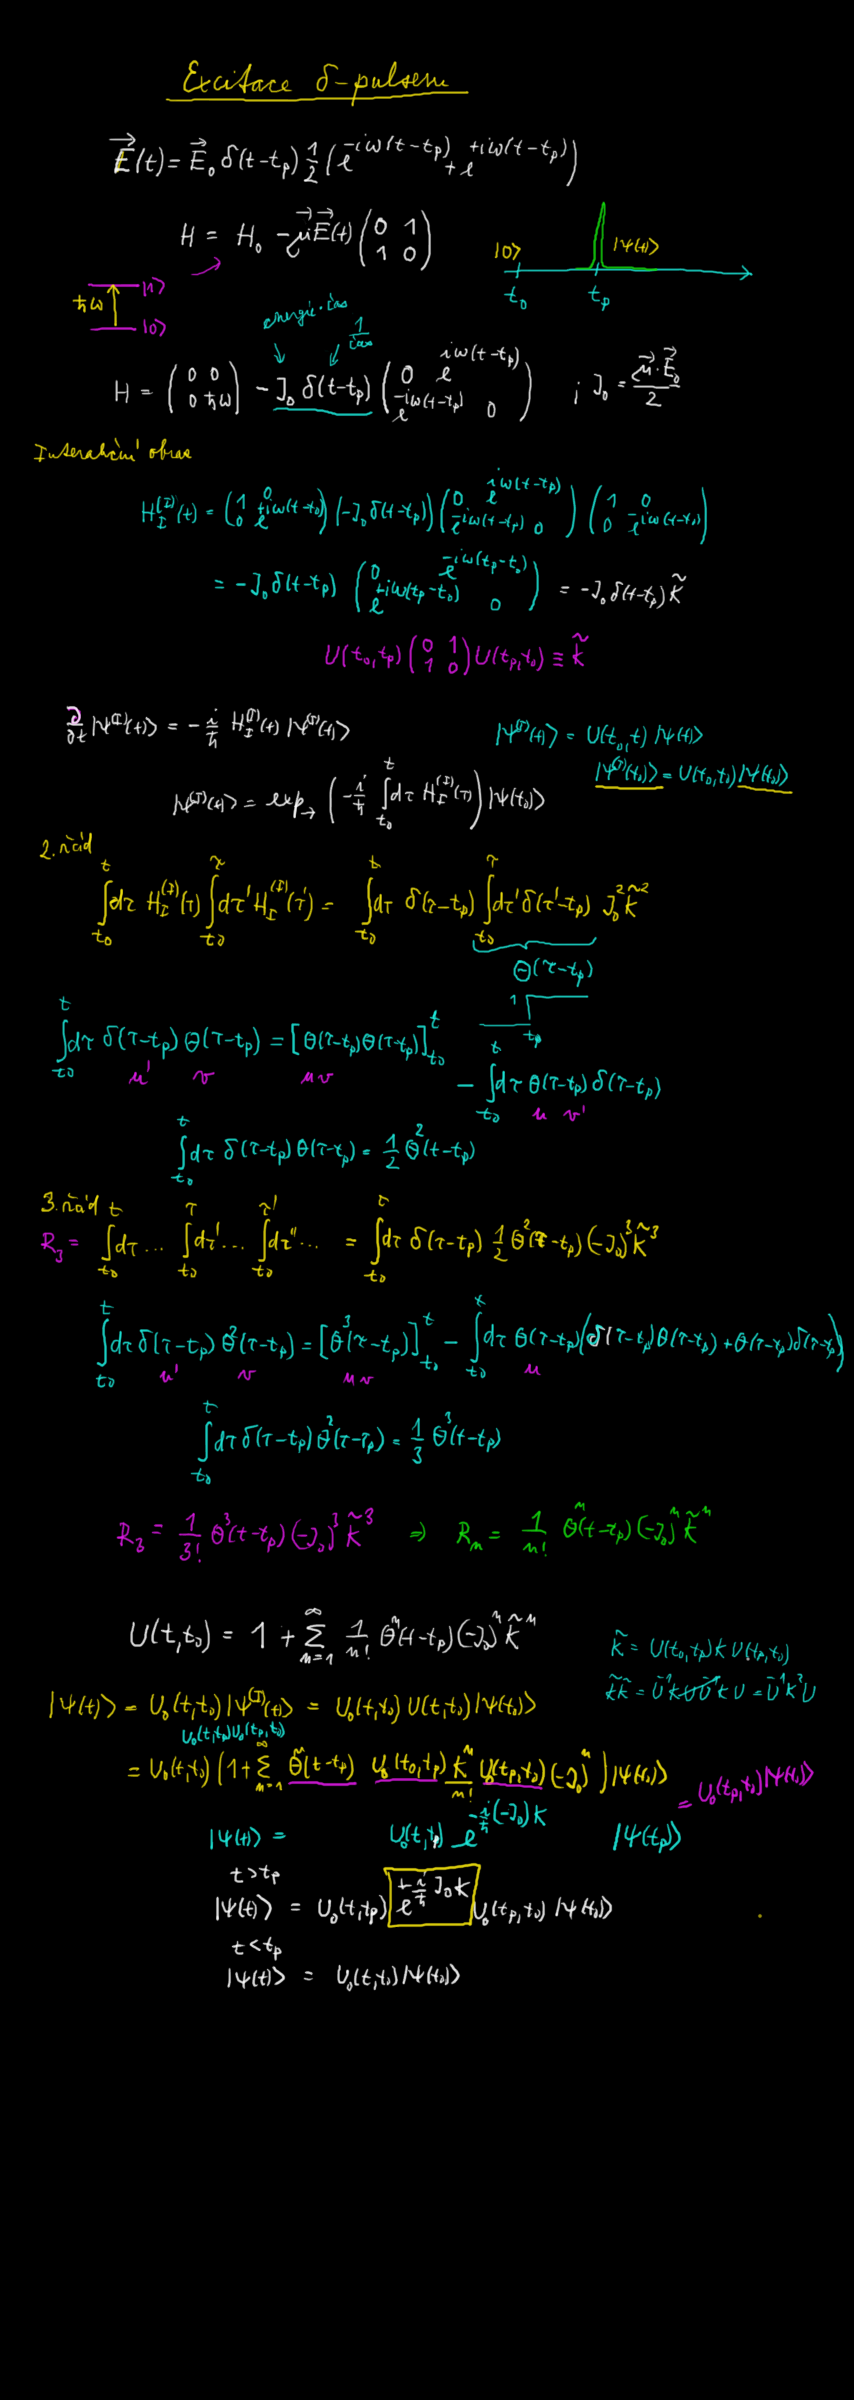 Excitace δ-pulsem
E⃗(t) = E⃗₀ δ(t-tₚ) 1/2 (e^{-iω(t-tₚ)} + e^{+iω(t-tₚ)})
H = H₀ - μ⃗E⃗(t) (0 1; 1 0)
|0⟩ |ψ(t)⟩
t₀ tₚ
|1⟩
ħω
|0⟩
energie·čas 1/čas
H = (0 0; 0 ħω) - J₀ δ(t-tₚ) (0 e^{iω(t-tₚ)}; e^{-iω(t-tₚ)} 0) ; J₀ = μ⃗·E⃗₀/2
Interakční obraz
H_I^{(I)}(t) = (1 0; 0 e^{+iω(t-t₀)}) (-J₀ δ(t-tₚ)) (0 e^{iω(t-tₚ)}; e^{-iω(t-tₚ)} 0) (1 0; 0 e^{-iω(t-t₀)})
= -J₀ δ(t-tₚ) (0 e^{-iω(tₚ-t₀)}; e^{+iω(tₚ-t₀)} 0) = -J₀ δ(t-tₚ) K̃
U(t₀,tₚ) (0 1; 1 0) U(tₚ,t₀) ≡ K̃
∂/∂t |ψ^{(I)}(t)⟩ = -i/ħ H_I^{(I)}(t) |ψ^{(I)}(t)⟩
|ψ^{(I)}(t)⟩ = U(t₀,t) |ψ(t)⟩
|ψ^{(I)}(t₀)⟩ = U(t₀,t₀) |ψ(t₀)⟩
|ψ^{(I)}(t)⟩ = exp→ (-i/ħ ∫_{t₀}^{t} dτ H_I^{(I)}(τ)) |ψ(t₀)⟩
2. řád
∫_{t₀}^{t} dτ H_I^{(I)}(τ) ∫_{t₀}^{τ} dτ' H_I^{(I)}(τ') = ∫_{t₀}^{t} dτ δ(τ-tₚ) ∫_{t₀}^{τ} dτ' δ(τ'-tₚ) J₀² K̃²
Θ(τ-tₚ)
1 tₚ
∫_{t₀}^{t} dτ δ(τ-tₚ) Θ(τ-tₚ) = [Θ(τ-tₚ)Θ(τ-tₚ)]_{t₀}^{t}
u' v uv
- ∫_{t₀}^{t} dτ Θ(τ-tₚ) δ(τ-tₚ)
u v'
∫_{t₀}^{t} dτ δ(τ-tₚ) Θ(τ-tₚ) = 1/2 Θ²(t-tₚ)
3. řád
R₃ = ∫_{t₀}^{t} dτ... ∫_{t₀}^{τ} dτ'... ∫_{t₀}^{τ'} dτ''... = ∫_{t₀}^{t} dτ δ(τ-tₚ) 1/2 Θ²(τ-tₚ) (-J₀)³ K̃³
∫_{t₀}^{t} dτ δ(τ-tₚ) Θ²(τ-tₚ) = [Θ³(τ-tₚ)]_{t₀}^{t} - ∫_{t₀}^{t} dτ Θ(τ-tₚ) (δ(τ-tₚ)Θ(τ-tₚ) + Θ(τ-tₚ)δ(τ-tₚ))
u' v uv u
∫_{t₀}^{t} dτ δ(τ-tₚ) Θ²(τ-τₚ) = 1/3 Θ³(t-tₚ)
R₃ = 1/3! Θ³(t-tₚ) (-J₀)³ K̃³ ⇒ Rₙ = 1/n! Θⁿ(t-tₚ) (-J₀)ⁿ K̃ⁿ
U(t,t₀) = 1 + Σ_{n=1}^{∞} 1/n! Θⁿ(t-tₚ) (-J₀)ⁿ K̃ⁿ
K̃ = U(t₀,tₚ) K U(tₚ,t₀)
K̃K̃ = U⁻¹KUU⁻¹KU = U⁻¹K²U
|ψ(t)⟩ = U₀(t,t₀) |ψ^{(I)}(t)⟩ = U₀(t,t₀) U(t,t₀) |ψ(t₀)⟩
U₀(t,tₚ)U₀(tₚ,t₀)
= U₀(t,t₀) (1 + Σ_{n=1}^{∞} Θⁿ(t-tₚ) U₀(t₀,tₚ) Kⁿ/n! U₀(tₚ,t₀) (-J₀)ⁿ) |ψ(t₀)⟩
= U₀(tₚ,t₀)|ψ(t₀)⟩
|ψ(t)⟩ = U₀(t,tₚ) e^{-i/ħ(-J₀)K} |ψ(tₚ)⟩
t > tₚ
|ψ(t)⟩ = U₀(t,tₚ) e^{+i/ħ J₀K} U₀(tₚ,t₀) |ψ(t₀)⟩
t < tₚ
|ψ(t)⟩ = U₀(t,t₀) |ψ(t₀)⟩